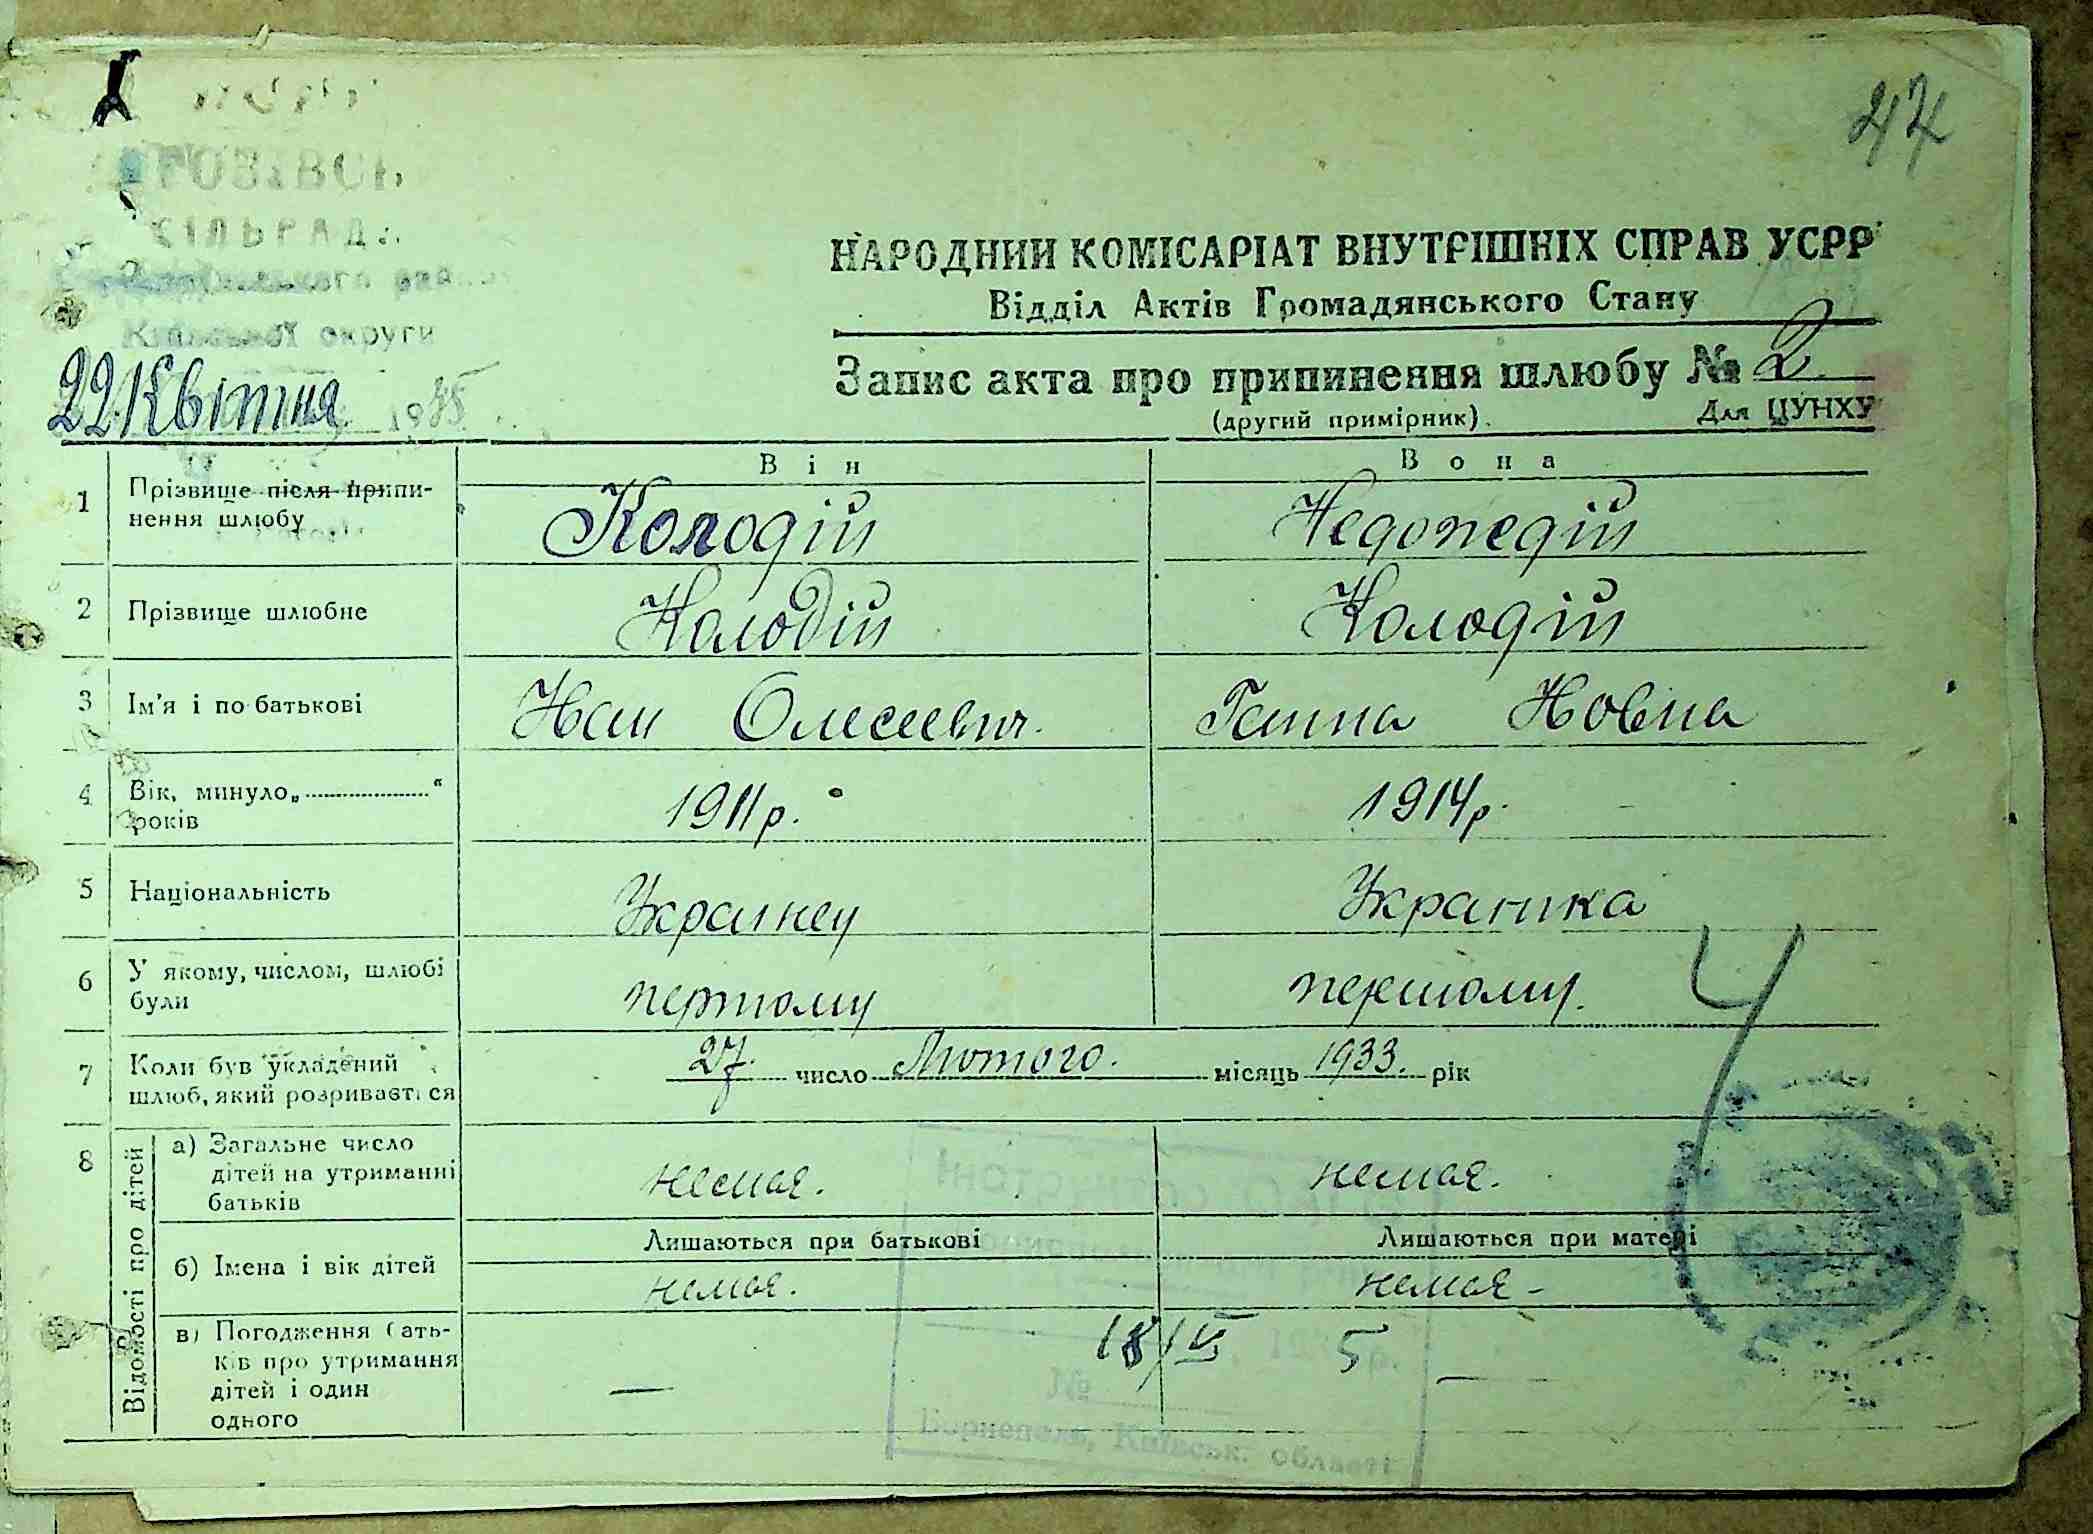 47
СІЛЬРАДА
Київської округи
22 Квітня 1935
НАРОДНИЙ КОМІСАРІАТ ВНУТРІШНІХ СПРАВ УСРР
Відділ Актів Громадянського Стану
Запис акта про припинення шлюбу № 2
(другий примірник). Для ЦУНХУ
Він Вона
1 Прізвище після припи-
нення шлюбу Колодій Недожедій
2 Прізвище шлюбне Колодій Колодій
3 Ім'я і по батькові Іван Олесеевич. Ганна Йовна
4 Вік, минуло „ “
років 1911 р. 1914 р.
5 Національність Украинец Украінка
6 У якому, числом, шлюбі
були першому першому.
7 Коли був укладений
шлюб, який розривається 27 число Лютого. місяць 1933. рік
8 Відомості про дітей
а) Загальне число
дітей на утриманні
батьків немає. немає.
Лишаються при батькові Лишаються при матері
б) Імена і вік дітей немає. немає -
в) Погодження бать-
ків про утримання
дітей і один
одного — —
18/VI 5 р.
№
Бориспіль, Київськ. області
4